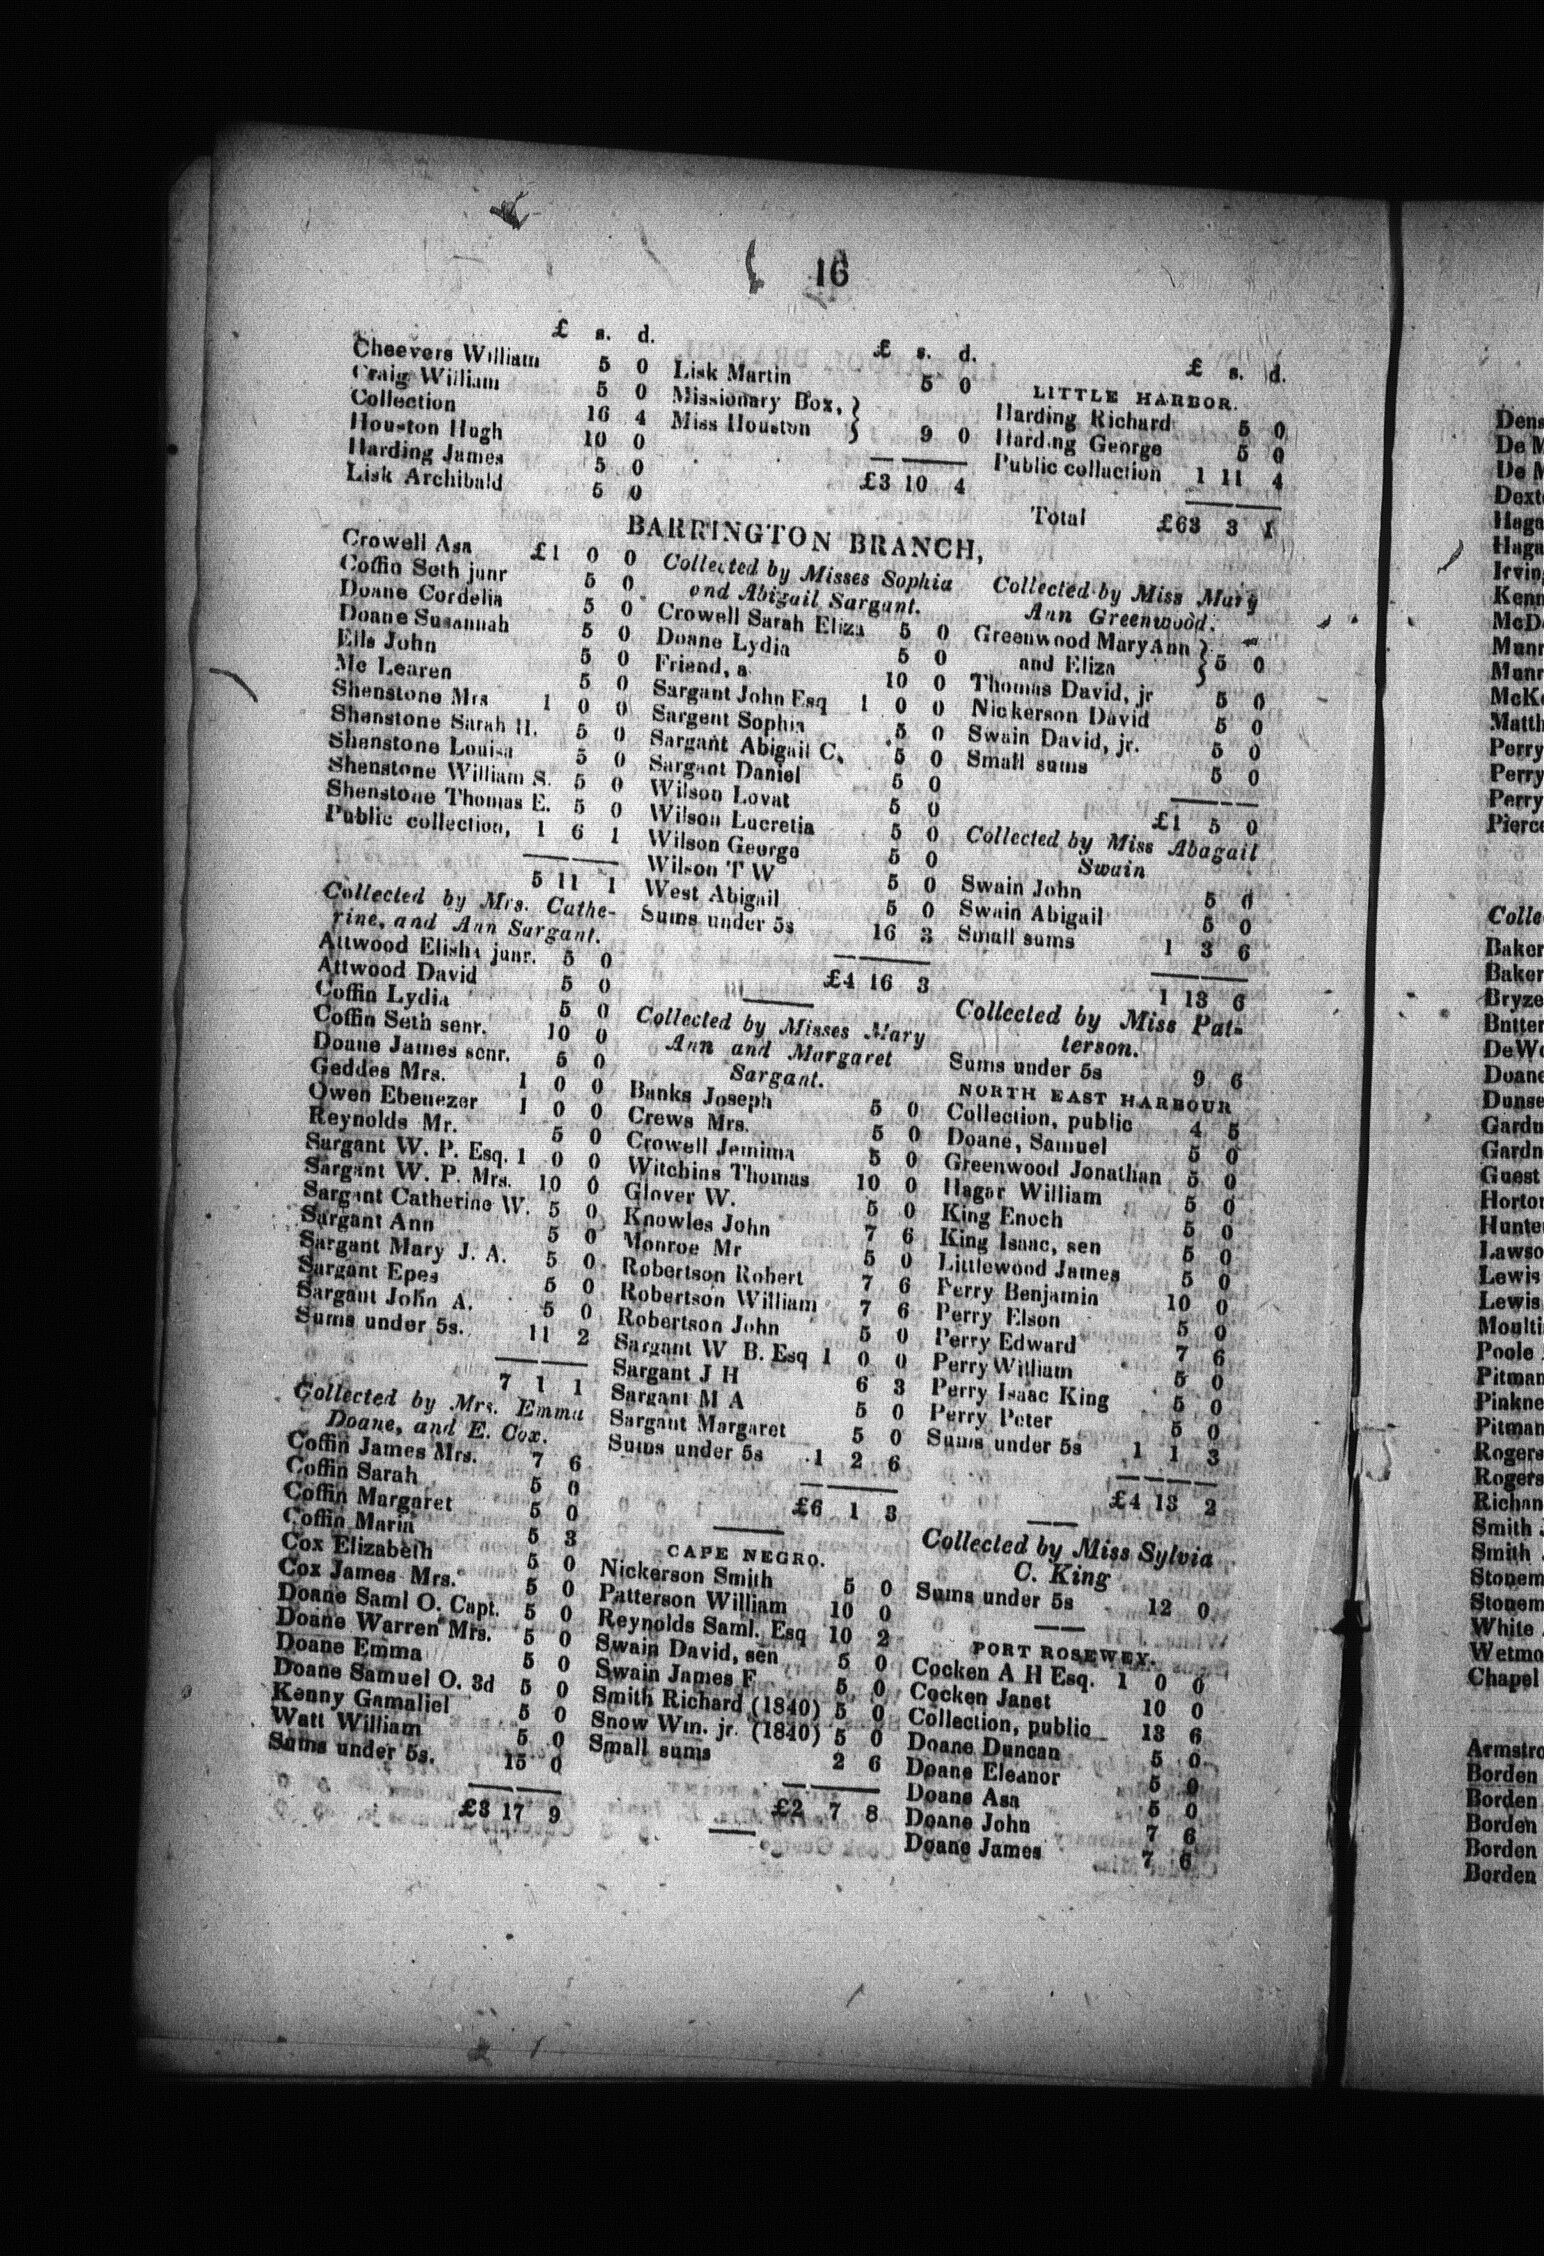 16
£ s. d.
Cheevers William 5 0
Craig William 5 0
Collection 16 4
Houston Hugh 10 0
Harding James 5 0
Lisk Archibald 5 0
£ s. d.
Lisk Martin 5 0
Missionary Box, }
Miss Houston } 9 0
£3 10 4
£ s. d.
LITTLE HARBOR.
Harding Richard 5 0
Harding George 5 0
Public collaction 1 11 4
Total £63 3 1
BARRINGTON BRANCH,
Crowell Asa £1 0 0
Coffin Seth junr 5 0
Doane Cordelia 5 0
Doane Susannah 5 0
Ells John 5 0
Mc Learen 5 0
Shenstone Mrs 1 0 0
Shenstone Sarah H. 5 0
Shenstone Louisa 5 0
Shenstone William S. 5 0
Shenstone Thomas E. 5 0
Public collection, 1 6 1
5 11 1
Collected by Mrs. Cathe-
rine, and Ann Sargant.
Attwood Elisha junr. 5 0
Attwood David 5 0
Coffin Lydia 5 0
Coffin Seth senr. 10 0
Doane James senr. 5 0
Geddes Mrs. 1 0 0
Owen Ebenezer 1 0 0
Reynolds Mr. 5 0
Sargant W. P. Esq. 1 0 0
Sargant W. P. Mrs. 10 0
Sargant Catherine W. 5 0
Sargant Ann 5 0
Sargant Mary J. A. 5 0
Sargant Epes 5 0
Sargant John A. 5 0
Sums under 5s. 11 2
7 1 1
Collected by Mrs. Emma
Doane, and E. Cox.
Coffin James Mrs. 7 6
Coffin Sarah 5 0
Coffin Margaret 5 0
Coffin Maria 5 3
Cox Elizabeth 5 0
Cox James Mrs. 5 0
Doane Saml O. Capt. 5 0
Doane Warren Mrs. 5 0
Doane Emma 5 0
Doane Samuel O. 3d 5 0
Kenny Gamaliel 5 0
Watt William 5 0
Sums under 5s. 15 0
£3 17 9
Collected by Misses Sophia
and Abigail Sargant.
Crowell Sarah Eliza 5 0
Doane Lydia 5 0
Friend, a 10 0
Sargant John Esq 1 0 0
Sargent Sophia 5 0
Sargant Abigail C. 5 0
Sargant Daniel 5 0
Wilson Lovat 5 0
Wilson Lucretia 5 0
Wilson George 5 0
Wilson T W 5 0
West Abigail 5 0
Sums under 5s 16 3
£4 16 3
Collected by Misses Mary
Ann and Margaret
Sargant.
Banks Joseph 5 0
Crews Mrs. 5 0
Crowell Jemima 5 0
Witchins Thomas 10 0
Glover W. 5 0
Knowles John 7 6
Monroe Mr 5 0
Robertson Robert 7 6
Robertson William 7 6
Robertson John 5 0
Sargant W B. Esq 1 0 0
Sargant J H 6 3
Sargant M A 5 0
Sargant Margaret 5 0
Sums under 5s 1 2 6
£6 1 3
CAPE NEGRO.
Nickerson Smith 5 0
Patterson William 10 0
Reynolds Saml. Esq 10 2
Swain David, sen 5 0
Swain James F 5 0
Smith Richard (1840) 5 0
Snow Wm. jr. (1840) 5 0
Small sums 2 6
£2 7 8
Collected by Miss Mary
Ann Greenwood.
Greenwood Mary Ann }
and Eliza } 5 0
Thomas David, jr 5 0
Nickerson David 5 0
Swain David, jr. 5 0
Small sums 5 0
£1 5 0
Collected by Miss Abagail
Swain
Swain John 5 0
Swain Abigail 5 0
Small sums 1 3 6
1 13 6
Collected by Miss Pat-
terson.
Sums under 5s 9 6
NORTH EAST HARBOUR
Collection, public 4 5
Doane, Samuel 5 0
Greenwood Jonathan 5 0
Hagar William 5 0
King Enoch 5 0
King Isaac, sen 5 0
Littlewood James 5 0
Perry Benjamin 10 0
Perry Elson 5 0
Perry Edward 7 6
Perry William 5 0
Perry Isaac King 5 0
Perry Peter 5 0
Sums under 5s 1 1 3
£4 13 2
Collected by Miss Sylvia
C. King
Sums under 5s 12 0
PORT ROSEWEY.
Cocken A H Esq. 1 0 0
Cocken Janet 10 0
Collection, public 13 6
Doane Duncan 5 0
Doane Eleanor 5 0
Doane Asa 5 0
Doane John 7 6
Doane James 7 6
Haga
Haga
Kenn
Perry
Perry
Perry
Pierce
Colle
Baker
Baker
Doane
Guest
Lewis
Lewis
Poole
Pitman
Pitman
Rogers
Rogers
Smith
Smith
White
Chapel
Borden
Borden
Borden
Borden
Borden